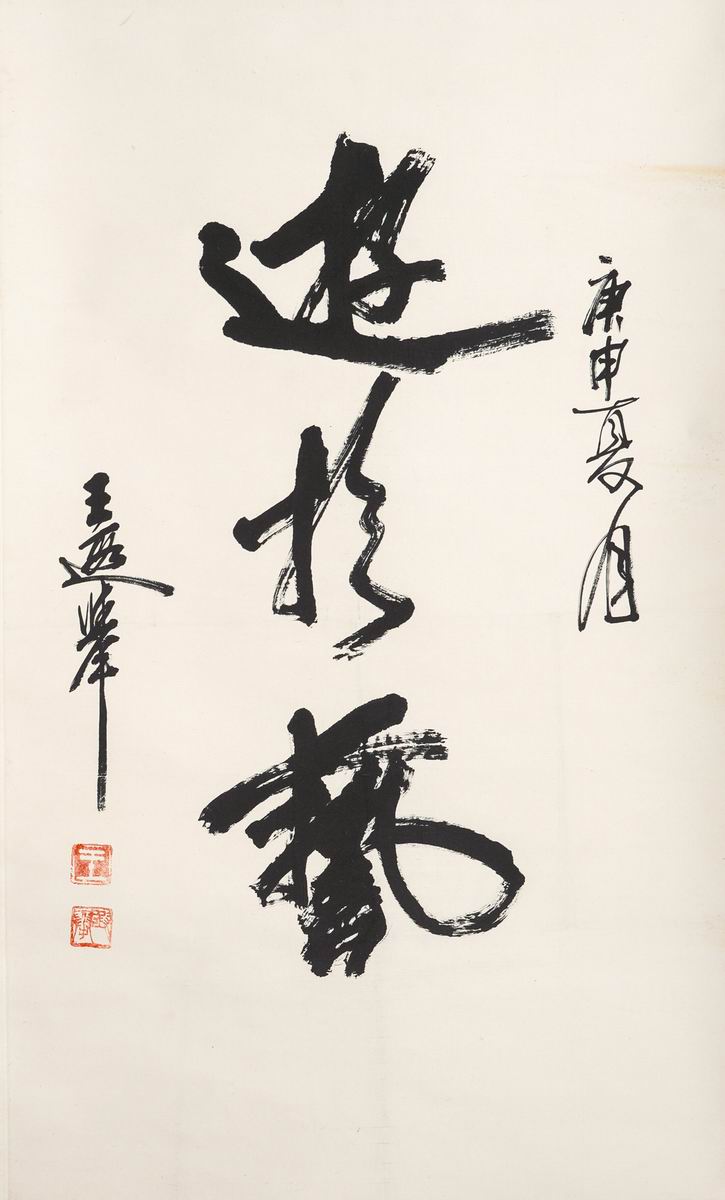 庚申夏月
遊於藝
王遐舉
王